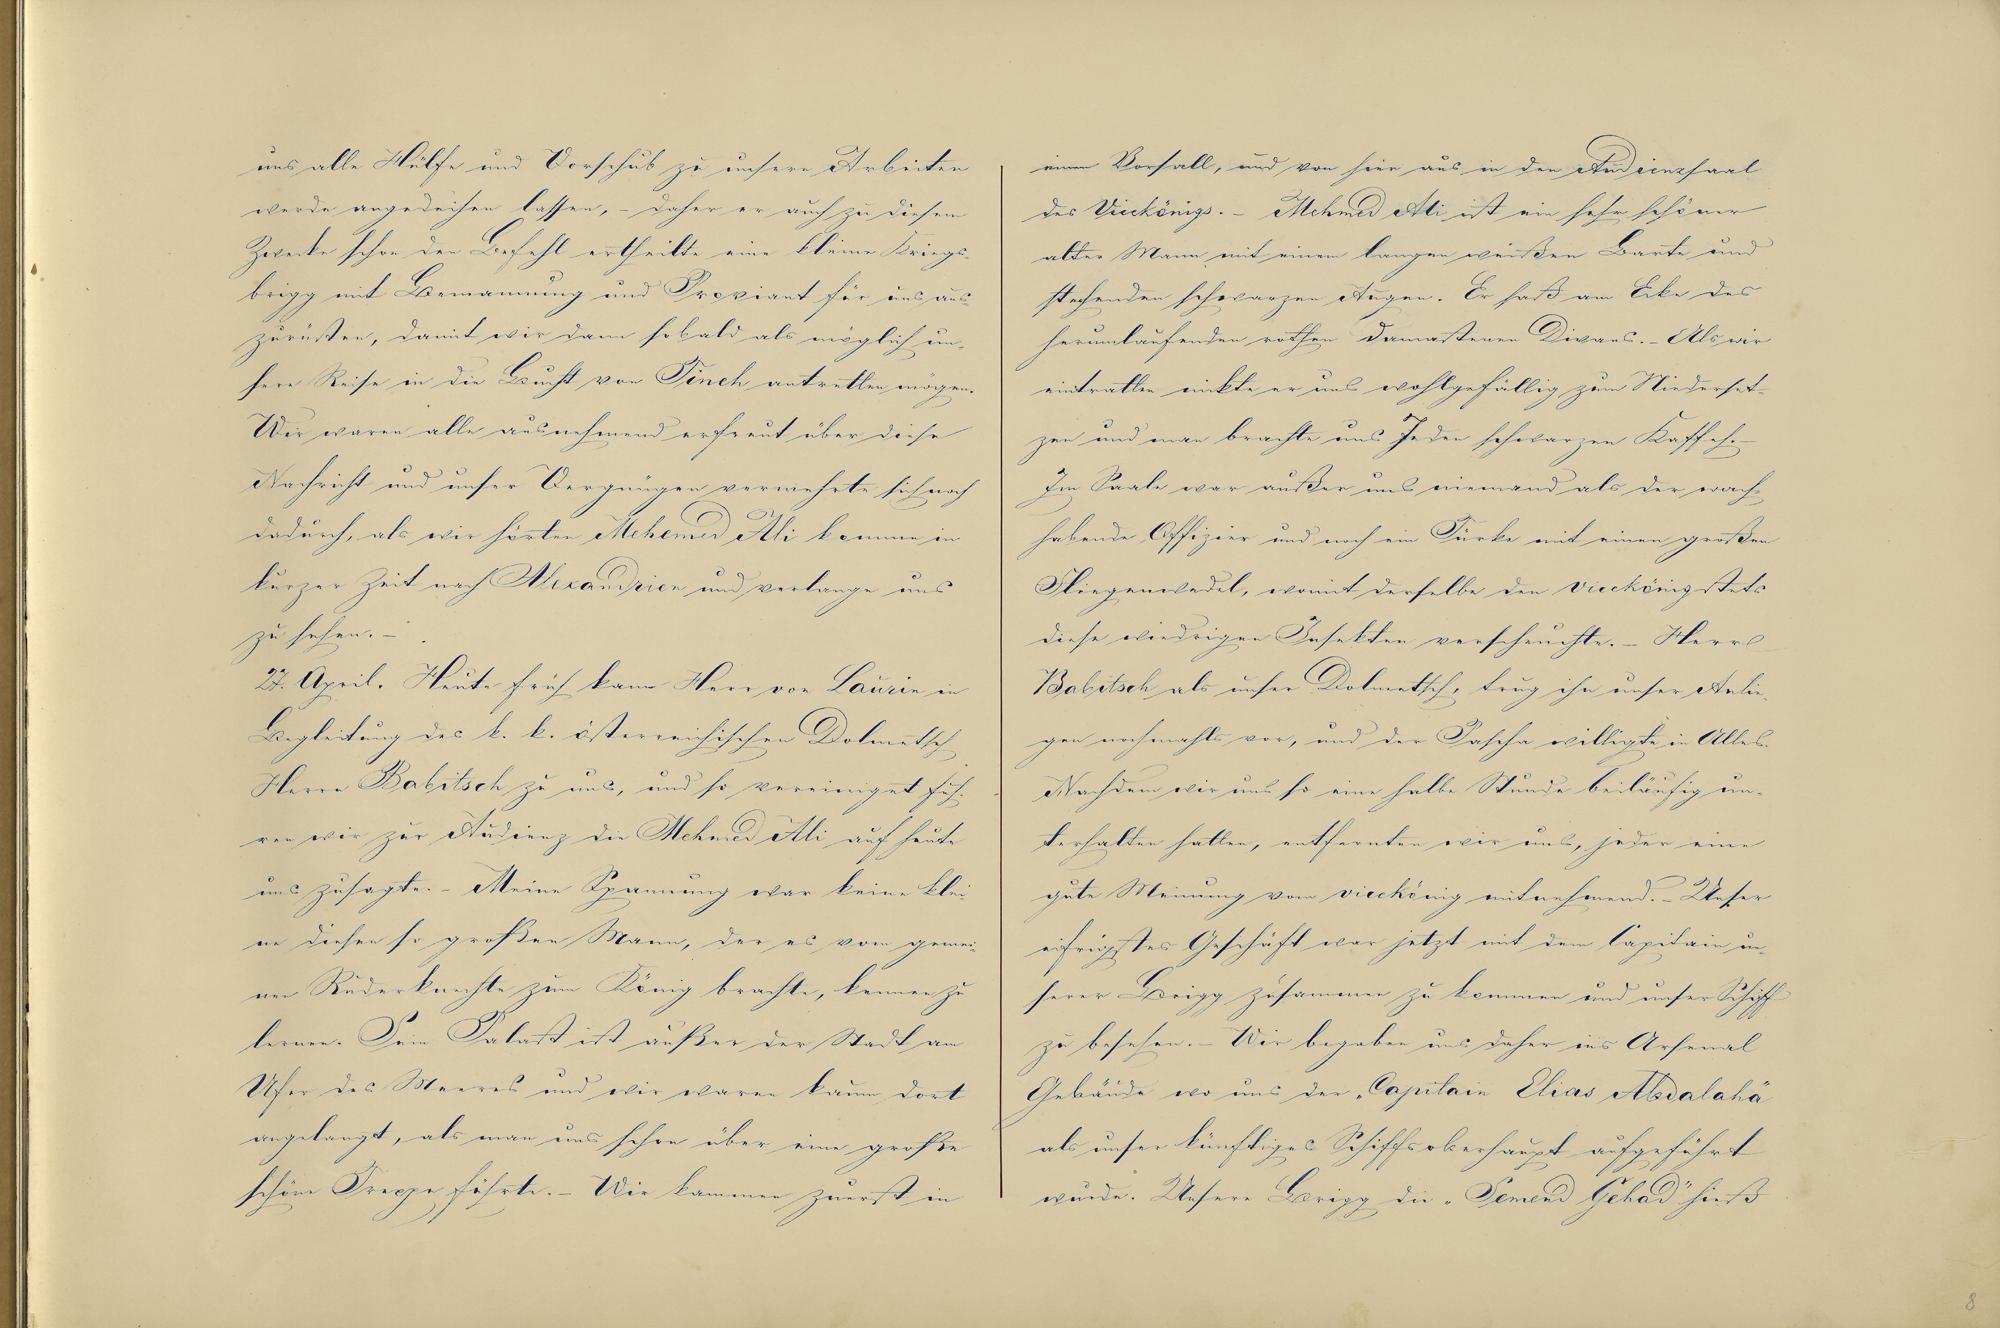 uns alle Hülfe und Vorschub zu unsern Arbeiten
werde angedeihen lassen, – daher er auch zu diesem
Zwecke schon den Befehl ertheilte eine kleine Kriegs-
brigg mit Bemannung und Proviant für uns aus-
zurüsten, damit wir dann sobald als möglich un-
sere Reise in die Bucht von Tineh antretten mögen.
Wir waren alle ausnehmend erfreut über diese
Nachricht und unser Vergnügen vermehrte sich noch
dadurch, als wir hörten Mehemed Ali komme in
kurzer Zeit nach Alexandrien und verlange uns
zu sehen. –
27. April. Heute früh kam Herr von Laurin in
Begleitung des k. k. österreichischen Dolmetsch
Herrn Babitsch zu uns, und so vereiniget fuh-
ren wir zur Audienz die Mehmed Ali auf heute
uns zusagte. – Meine Spannung war keine klei-
ne diesen so großen Mann, der es vom gemei-
nen Ruderknechte zum König brachte, kennen zu
lernen. Sein Palast ist außer der Stadt am
Ufer des Meeres und wir waren kaum dort
angelangt, als man uns schon über eine große
schöne Treppe führte. – Wir kammen zuerst in
einen Vorsall, und von hier aus in den Audienzsaal
des Vicekönigs. – Mehmed Ali ist ein sehr schöner
alter Mann mit einem langen weißen Barte und
stechenden schwarzen Augen. Er saß am Ecke des
herumlaufenden rothen damastenen Divans. – Als wir
eintratten nickte er uns wohlgefällig zum Niederset-
zen und man brachte uns Jeden schwarzen Kaffeh. –
Im Saale war außer uns niemand als der wach-
habende Offizier und noch ein Türke mit einen großen
Fliegenwedel, womit derselbe den Vicekönig stets
diese wiedrigen Insekten verscheuchte. – Herr
Babitsch als unser Dolmetsch, trug ihn unser Anlie-
gen nochmahls vor, und der Pascha willigte in Alles.
Nachdem wir uns so eine halbe Stunde beiläufig un-
terhalten hatten, entfernten wir uns, jeder eine
gute Meinung vom vicekönig mitnehmend. – Unser
eifrigstes Geschäft war jetzt mit dem Capitain un-
serer Brigg zusammen zu kommen und unser Schiff
zu besehen. – Wir begaben uns daher ins Arsenal
Gebäude wo uns der Capitain Elias Abdalahä
als unser künftiges Schiffsoberhaupt aufgeführt
wurde. Unsere Brigg die „Semend Gehad" hieß
8